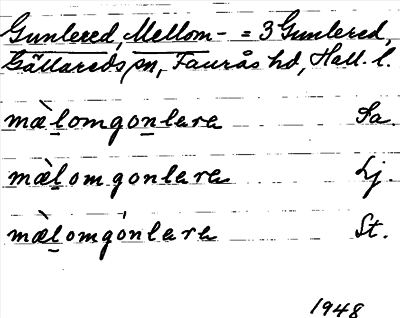 Gunlered, Mellom- = 3 Gunlered,
Gällareds sn, Faurås hd, Hall. l.
mæ̀lomgonlera Sa.
mæ̀lomgonlera Lj.
mæ̀lomgónlera St.
1948